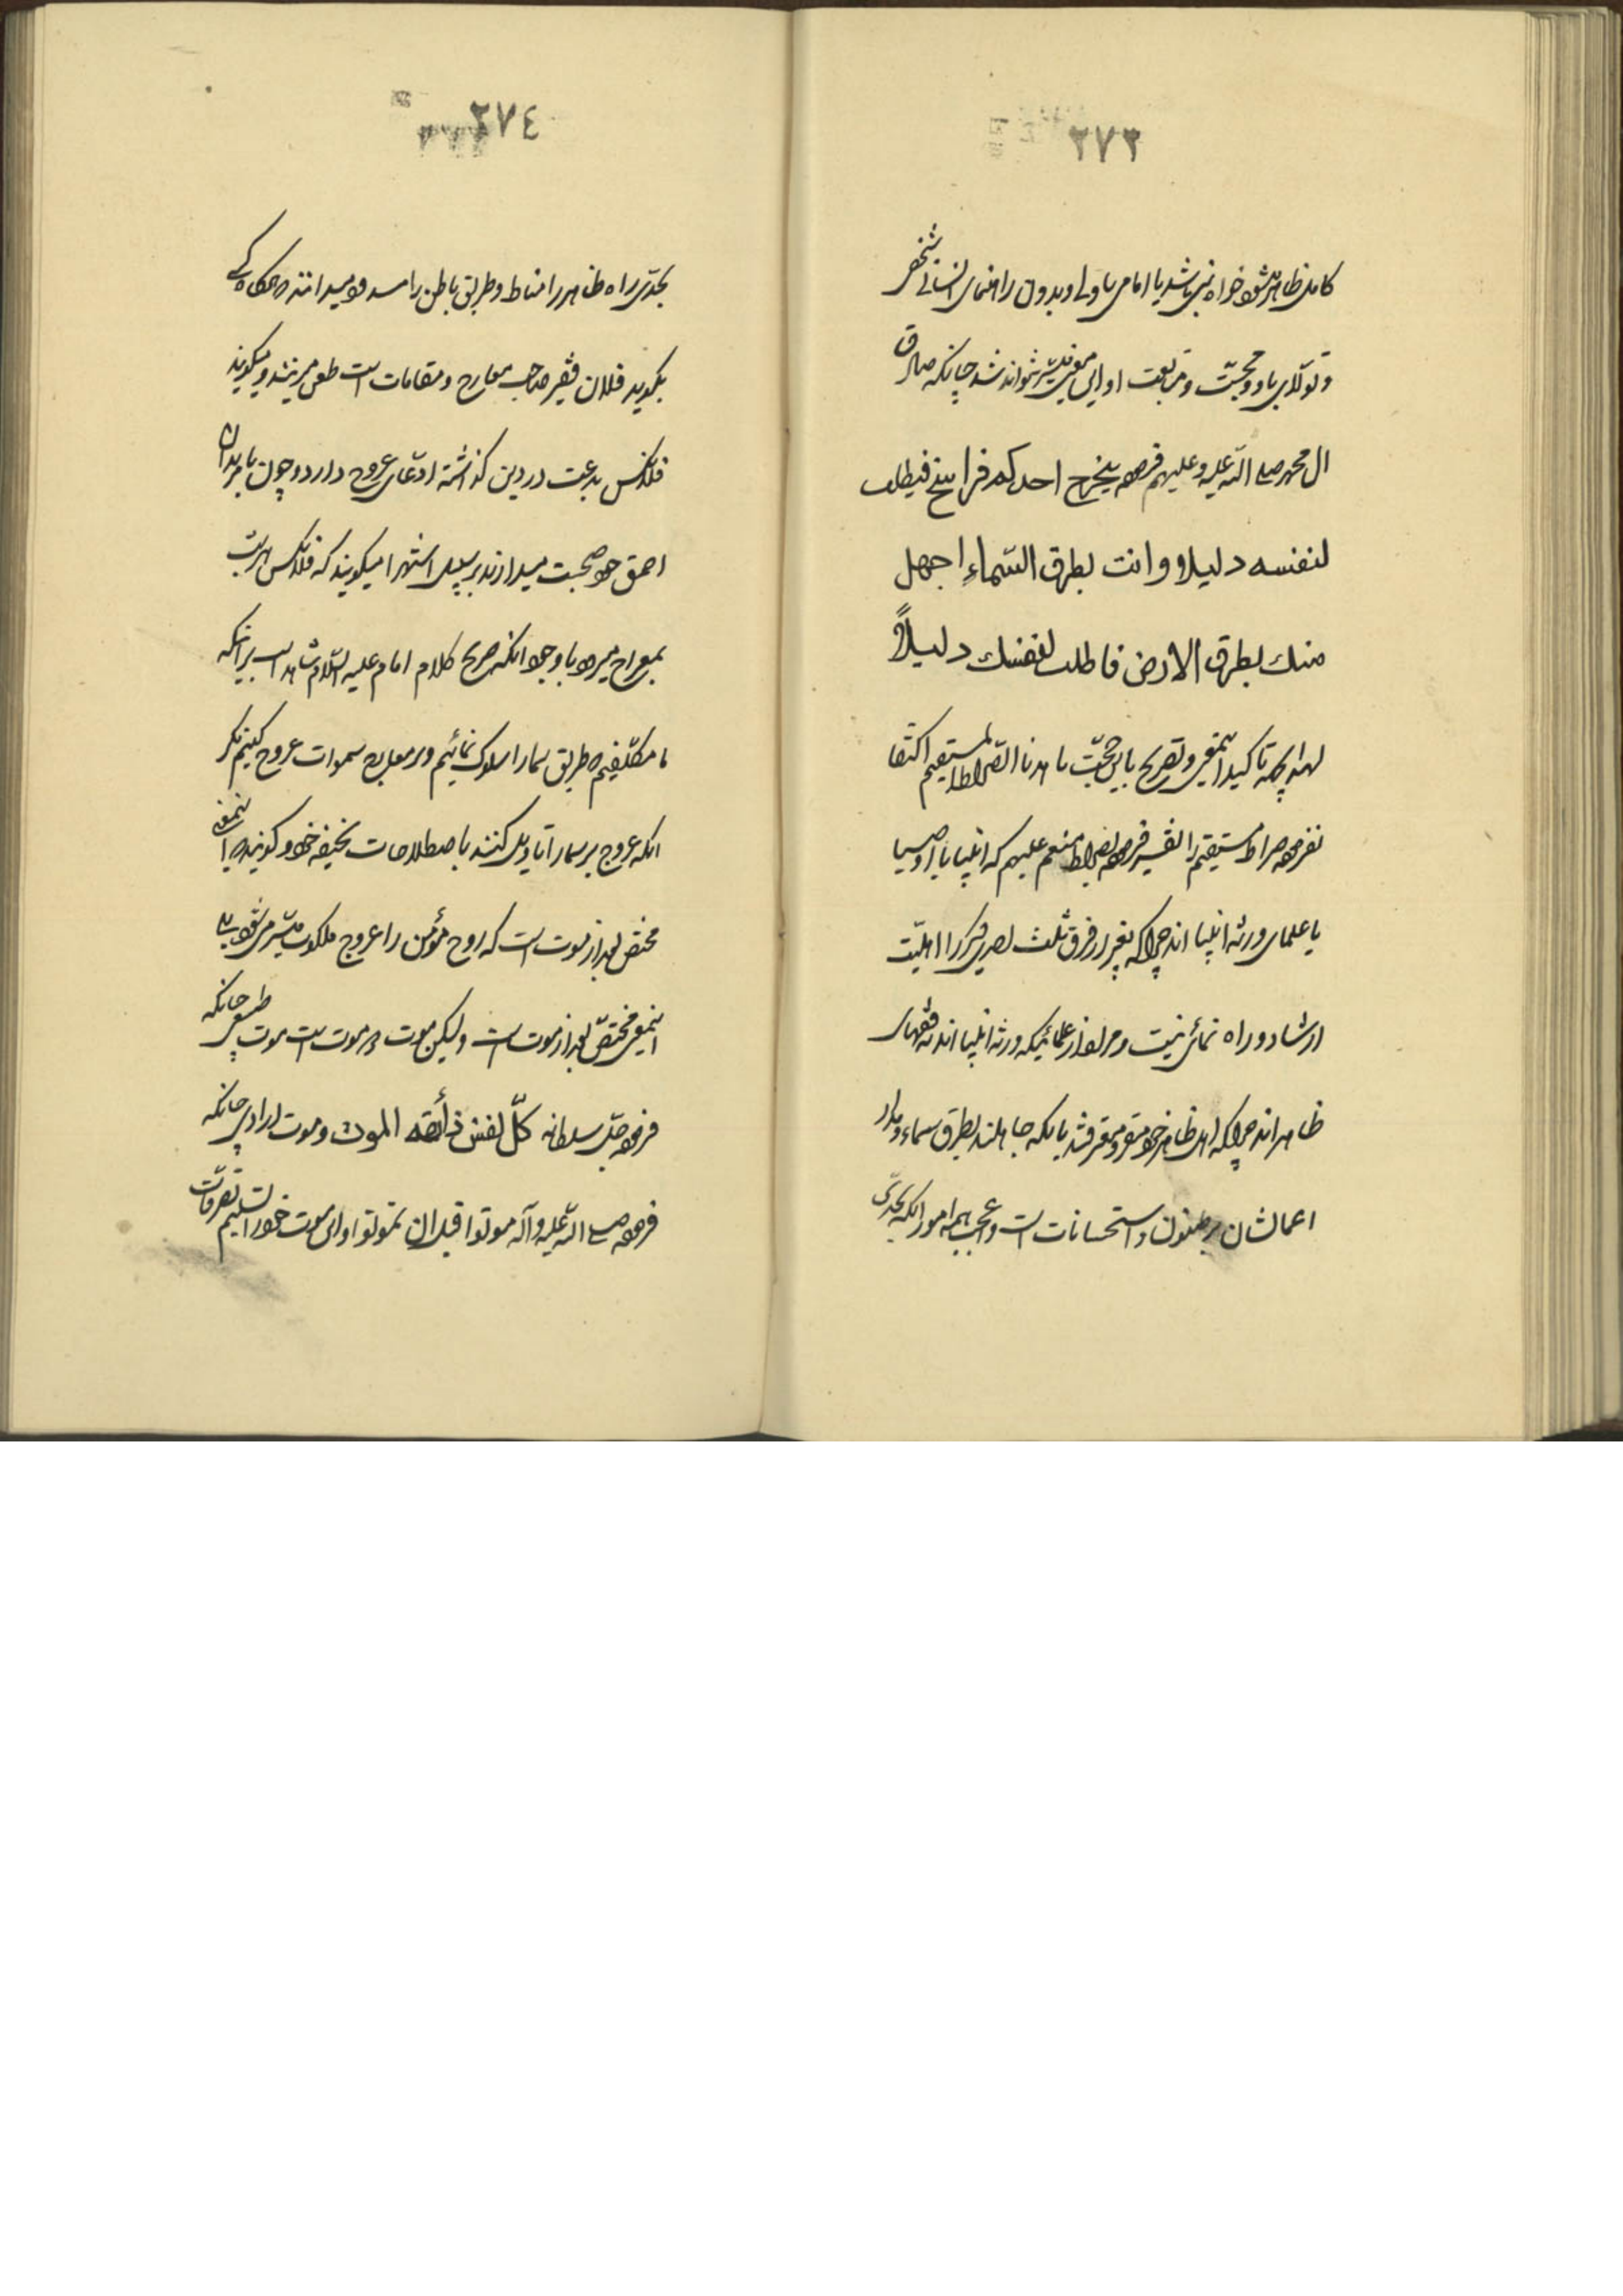 ٢٧٣
کامل ظاهر میشود خواه نبی باشد یا امامی یا ولی و بدون راهنمای انسانی شخص
و تولّای باو و محبّت و متابعت او این معنی میسّر نتواند شد چنانکه صادق
ال محمد صلی اللّه علیه و علیهم فرموده یخرج احدکم فراسخ فیطلب
لنفسه دلیلا و انت بطرق السّماءِ اجهل
منك بطرق الارض فاطلب لنفسك دلیلاً
لهذا بجهة تاکید اینمعنی و تصریح باین حجّت باهدنا الصّراط المستقیم اکتفا
نفرموده صراط مستقیم را تفسیر فرموده بصراط منعم علیهم که انبیا یا اوصیا
یا علمای ورثه انبیا اند چراکه بغیر از فرق ثلث احدی دیگر را اهلیّت
ارشاد و راه نمائی نیست و مراد از علمائیکه ورثه انبیا اند نه فقهای
ظاهراند چراکه اهل ظاهر خود مقرّ و معترفند باینکه جاهلند بطرق سماء و مدار
اعمالشان بر ظنون و استحسانات است و عجب همه امور انکه بحدّی
٢٧٤
بحدّی راه ظاهر را مناط و طریق باطن را مسدود میدانند که هرگاه کسی
بگوید فلان فقیر صاحب معارج و مقامات است طعن میزنند و میگویند
فلانکس بدعت در دین گذاشته ادّعای عروج دارد و چون با مریدان
احمق خود صحبت میدارند بر سبیل استهزا میگویند که فلانکس هر شب
بمعراج میرود با وجود انکه صریح کلام امام علیه السّلام شاهد است بر اینکه
ما مکلّفیم که طریق سما را سلوک نمائیم و بر معارج سموات عروج کنیم مگر
انکه عروج بر سما را تاویل کنند باصطلاحات سخیفه خود و گویند که اینمعنی
مختص بعد از موت است که روح مؤمن را عروج ملکوت میسّر می شود بلی
اینمعنی مختصّ بعد از موت است ولیکن موت دو موت است موت طبیعی چنانکه
فرموده جلّ سلطانه کلّ نفس ذائقه الموت و موت ارادی چنانکه
فرموده صلی اللّه علیه و آله موتوا قبل ان تموتوا و این موت خود را تسلیم تصرفات